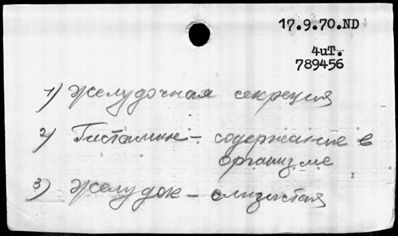 17.9.70.ND
4иТ.
789456
1) Желудочная секреция
2) Гистамин – содержание в
организме
3) Желудок – слизистая